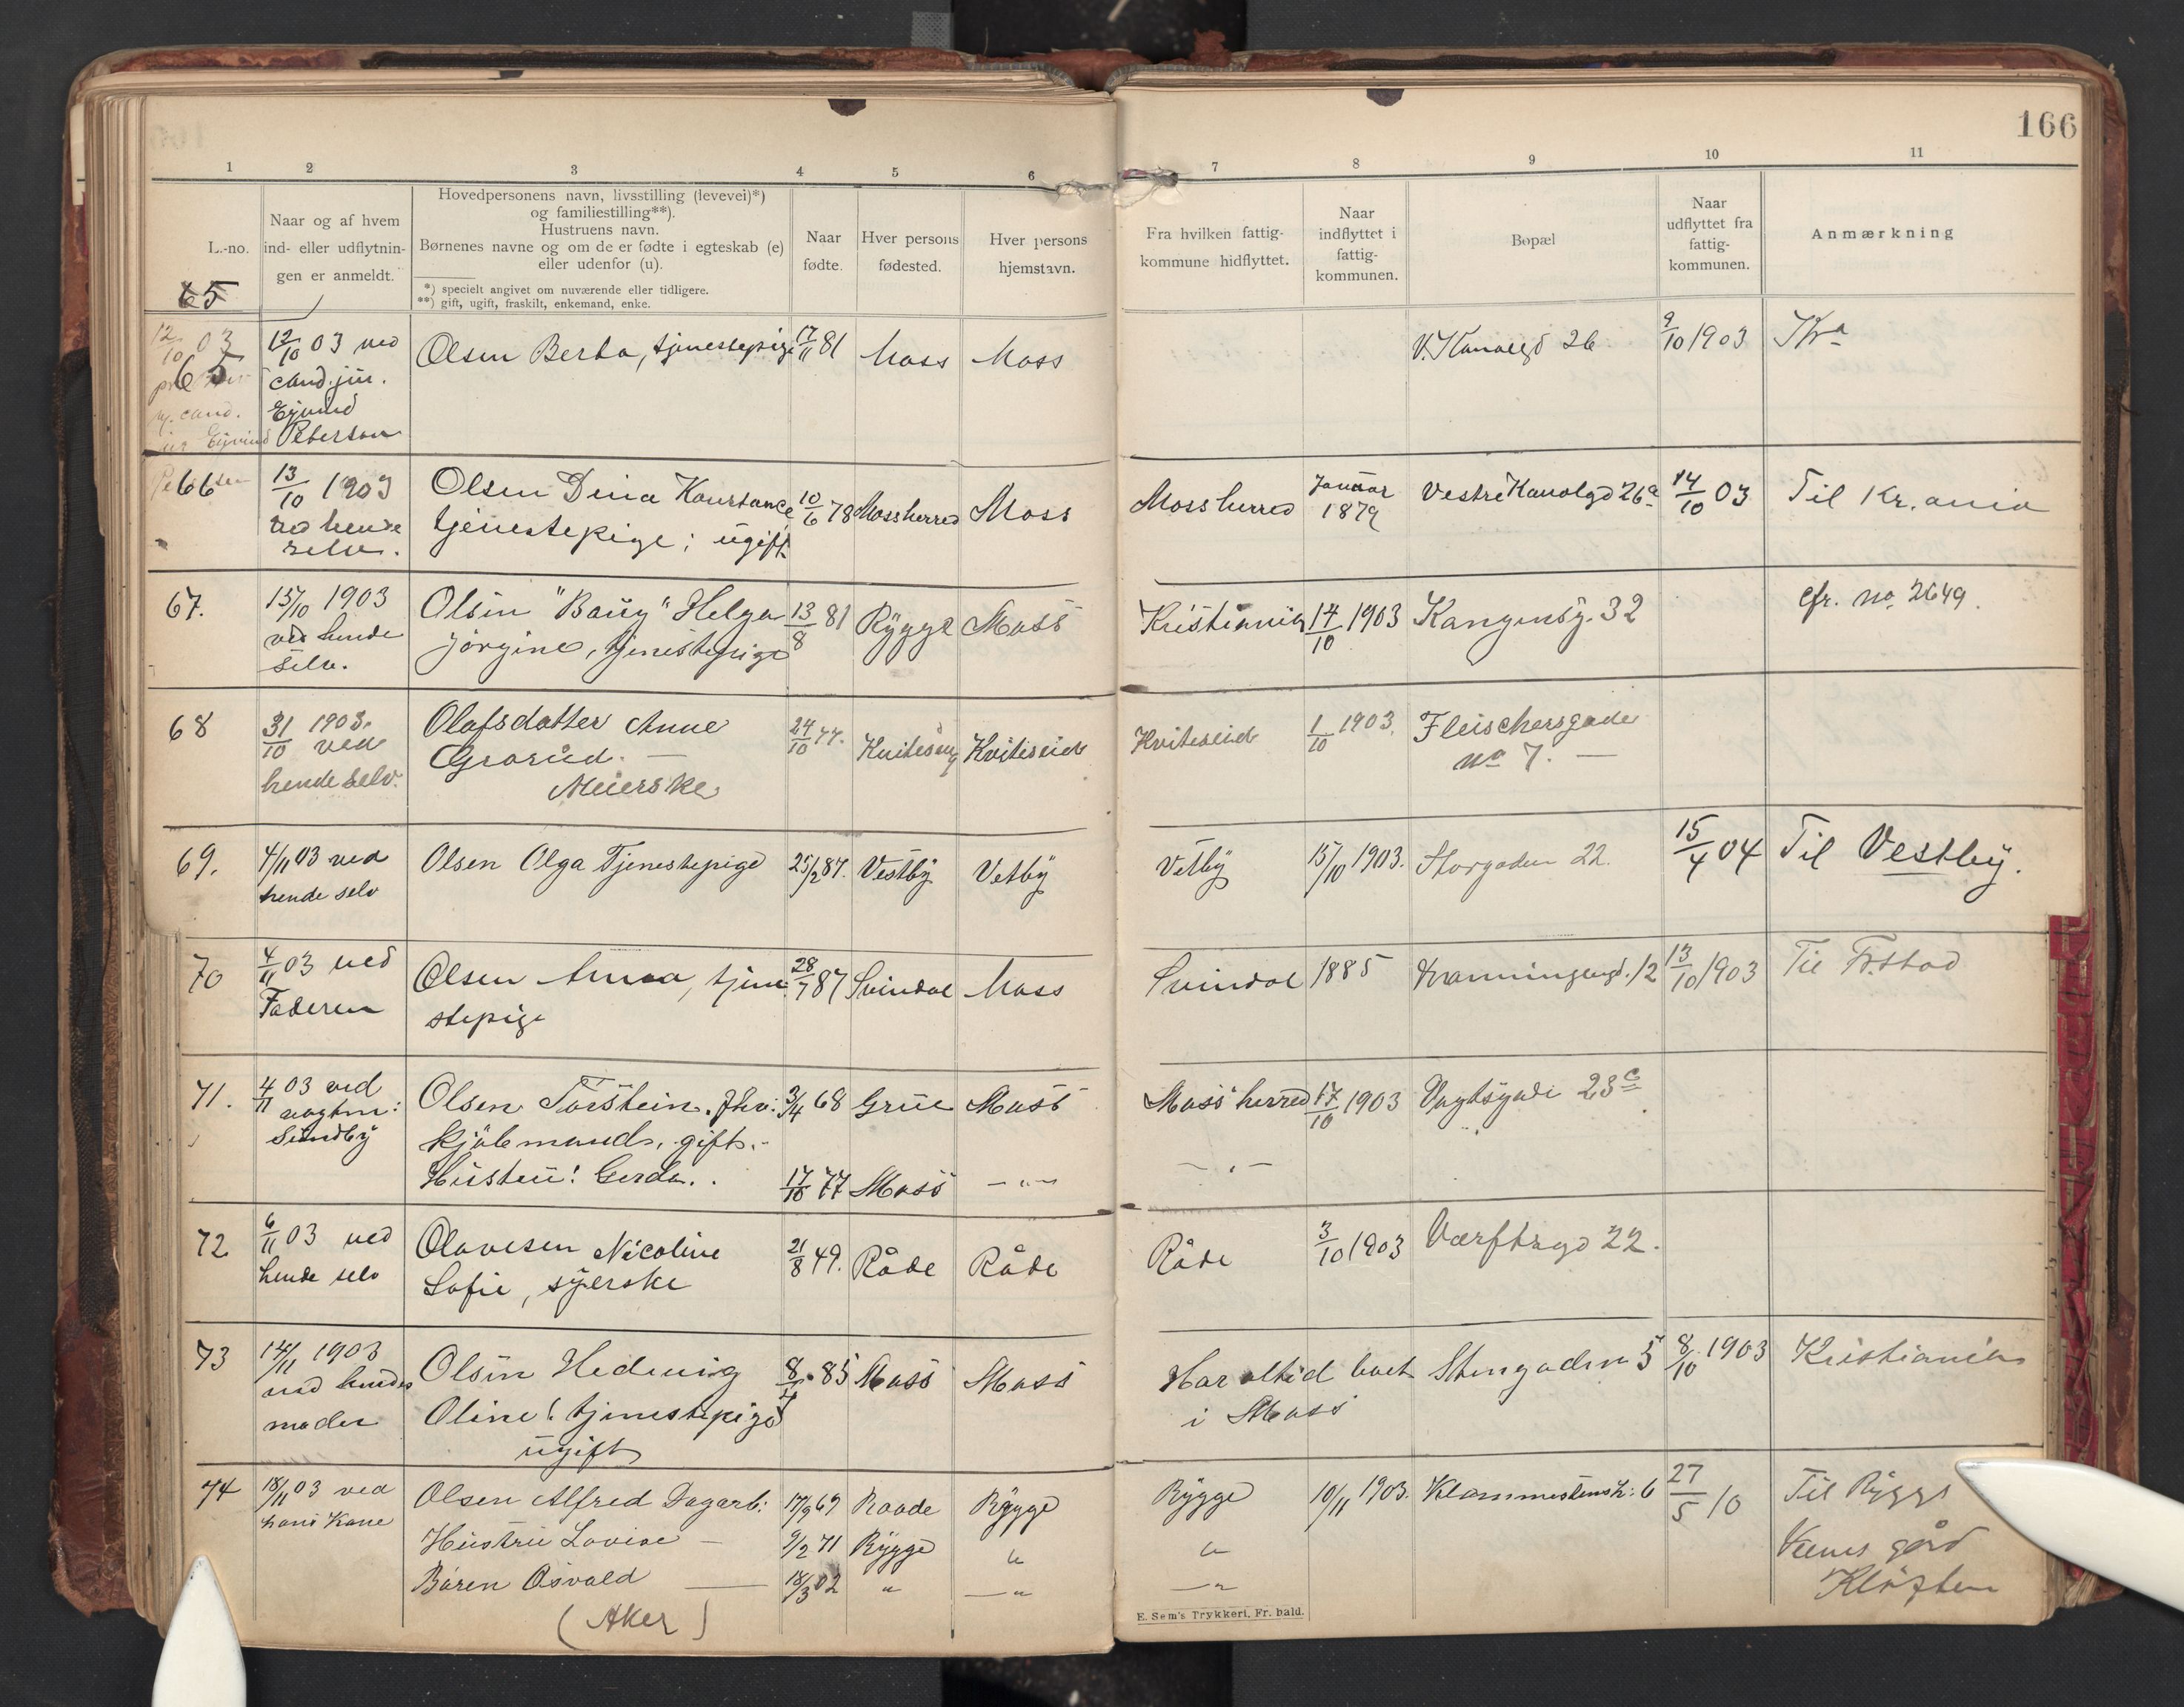 166
1 2 3 4 5 6 7 8 9 10 11
L.-no.
Naar og af hvem
ind- eller udflytnin-
gen er anmeldt.
Hovedpersonens navn, livsstilling (levevei)*)
og familiestilling**).
Hustruens navn.
Børnenes navne og om de er fødte i egteskab (e)
eller udenfor (u).
*) specielt angivet om nuværende eller tidligere.
**) gift, ugift, fraskilt, enkemand, enke.
Naar
fødte.
Hver persons
fødested.
Hver persons
hjemstavn.
Fra hvilken fattig-
kommune hidflyttet.
Naar
indflyttet i
fattig-
kommunen.
Bopæl
Naar
udflyttet fra
fattig-
kommunen.
Anmærkning
65
12/10 03
65
cand.
Ejvind
12/10 03 ved
cand. jur.
Ejvind
Petersen
Olsen Berta, tjenestepige 17/11 81 Moss Moss
V. Kanalgd 26 9/10 1903 Kra
66
13/10 1903
ved hende
selv.
Olsen Dina Konstance
tjenestepige; ugift
10/6 78 Moss herred Moss
Moss herred Januar
1879
Vestre Kanalgd 26a 14/10 03 Til Kr.ania
67.
15/10 1903
ved hende
selv.
Olsen "Baug" Helga
Jørgine, tjenestepige
13/8 81 Rygge Moss
Kristiania 14/10 1903 Kongensg. 32 cfr. no. 2649.
68
31/10 1903.
ved
hende selv.
Olafsdatter Anne
Grorud. —
Meierske
24/10 77. Kviteseid
Kviteseid 1/10 1903. Fleischersgade
no 7. —
69.
4/11 03 ved
hende selv
Olsen Olga Tjenestepige 25/2 87. Vestby Vetby
Vetby 15/10 1903. Storgaden 22. 15/4 04 Til Vestby.
70
4/11 03 ved
Faderen
Olsen Anna, tjene
stepige
28/7 87 Svindal Moss
Svindal 1885 12 13/10 1903 Til Fr.stad
71.
4/11 03 ved
vagtm:
Sundby
Olsen Torstein. Fhv.
kjøbmand, gift.-
Hustru: Gerda.
3/4 68 Grue Moss
17/10 77 Moss — " —
Moss herred 17/10 1903 Vogtsgade 23c
— " —
72
6/11 03 ved
hende selv
Olavesen Nicoline
Sofie, syerske
21/8 49. Råde Råde
Råde 3/10 1903 Værftsgd 22.
73
14/11 1903
ved hendes
moder
Olsen Hedevig
Oline! tjenestepige
ugift
8/11 85 Moss Moss
Har altid boet
i Moss
Stengaden 5 8/10 1903 Kristiania
74
18/11 03 ved
hans Kone
Olsen Alfred Dagarb: 17/9 69 Raade Rygge
Hustru Lovise — 9/2 71 Rygge "
Baren Osvald — 18/3 02 " — "
(Aker)
Rygge 10/11 1903. Klommestensh: 6 27/5 10 Til Rygge
"
— "
gård
Kløften
E. Sem's Trykkeri, Fr. hald.